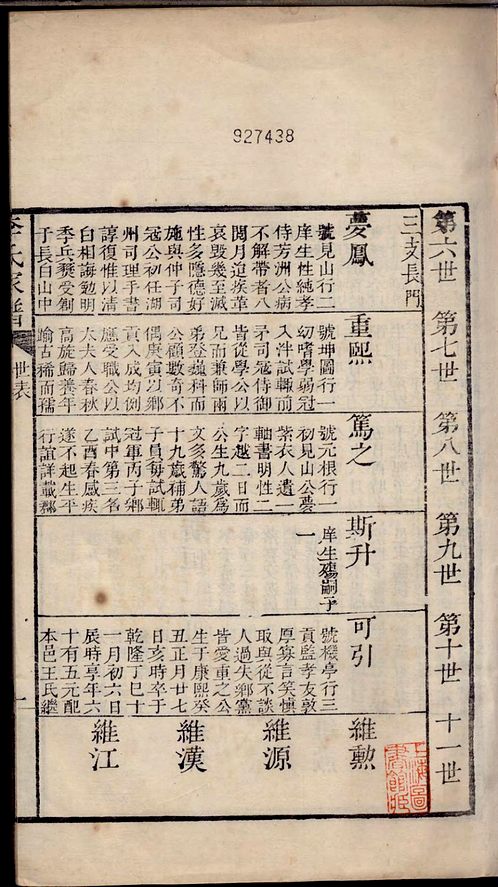 927438
第六世 第七世 第八世 第九世 第十世 十一世
三支長門
夢鳳
號見山行二
庠生性純孝
侍芳洲公病
不解帶者八
閱月迨疾革
哀毀幾至滅
性多隱德好
施與仲子司
寇公初任湖
州司理手書
諄復惟以清
白相誨勉明
季兵燹受刱
于長白山中
重熙
號坤圖行一
幼嗜學弱冠
入泮試輒前
矛司寇侍御
皆從學公以
兄而兼師兩
弟登蟻科而
公顧數奇不
偶庚寅以鄉
貢入成均例
應受職公以
太夫人春秋
高旋歸養年
踰古稀而孺
篤之
號元根行一
初見山公夢
紫衣人遺一
軸書明性二
字越二日而
公生九歲為
文多驚人語
十九歲補弟
子員每試輒
冠軍丙子鄉
試中第三名
乙酉春感疾
遂不起生平
行誼詳載郡
斯升
庠生殤嗣子
一
可引
號機亭行三
貢監孝友敦
厚寡言笑慎
取與從不談
人過失鄉黨
皆愛重之公
生于康熙癸
丑正月廿七
日亥時卒于
乾隆丁巳十
一月初六日
辰時享年六
十有五元配
本邑王氏繼
維勳
維源
維漢
維江
氏家譜
世表
一
上海圖書館藏